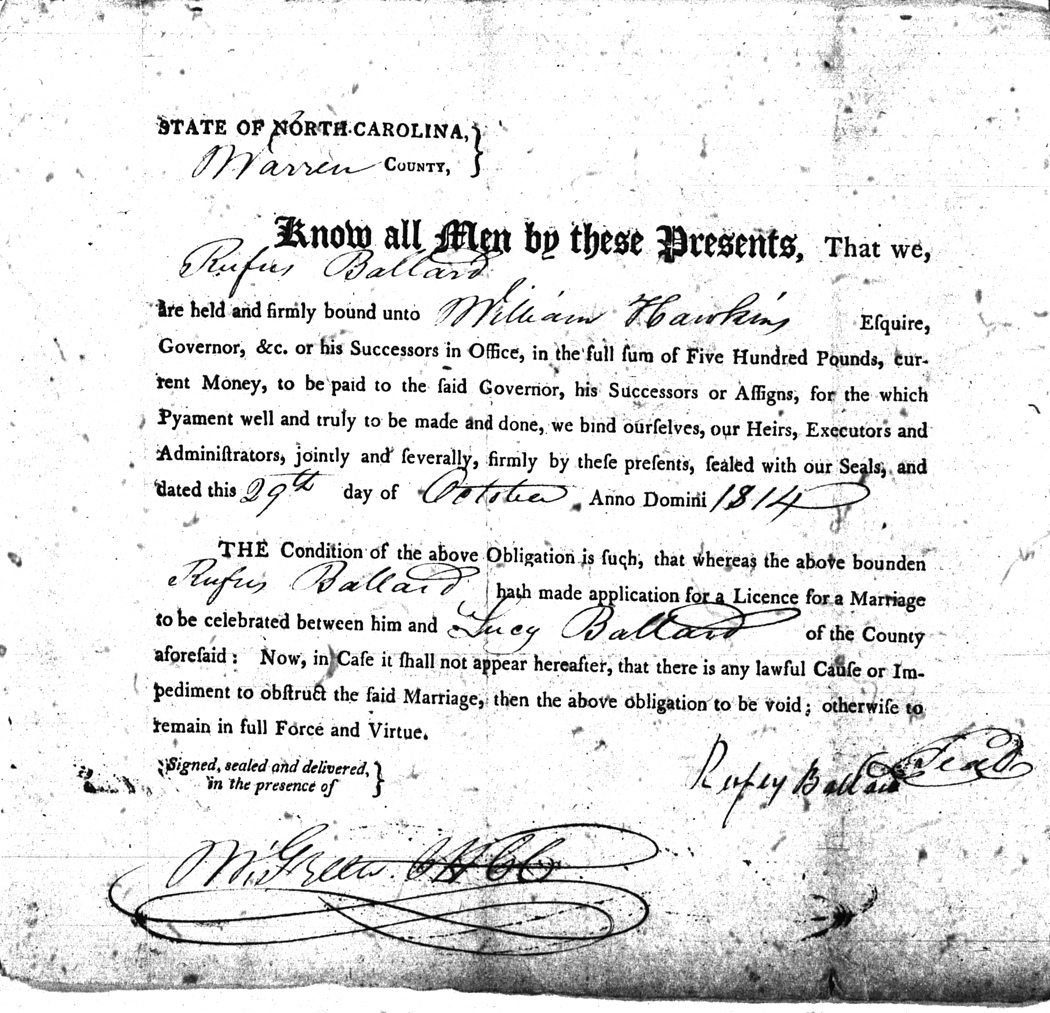 STATE OF NORTH-CAROLINA,
Warren COUNTY,
Know all Men by these Presents, That we,
Rufus Ballard
are held and firmly bound unto William Hawkins Eſquire,
Governor, &c. or his Successors in Office, in the full ſum of Five Hundred Pounds, cur-
rent Money, to be paid to the ſaid Governor, his Successors or Aſſigns, for the which
Pyament well and truly to be made and done, we bind ourſelves, our Heirs, Executors and
Adminiſtrators, jointly and ſeverally, firmly by theſe preſents, ſealed with our Seals, and
dated this 29th day of October Anno Domini 1814
THE Condition of the above Obligation is ſuch, that whereas the above bounden
Rufus Ballard hath made application for a Licence for a Marriage
to be celebrated between him and Lucy Ballard of the County
aforeſaid: Now, in Caſe it ſhall not appear hereafter, that there is any lawful Cauſe or Im-
pediment to obſtruct the ſaid Marriage, then the above obligation to be void; otherwiſe to
remain in full Force and Virtue.
Signed, sealed and delivered,
in the presence of
Rufus Ballard Seal
Wm. Green